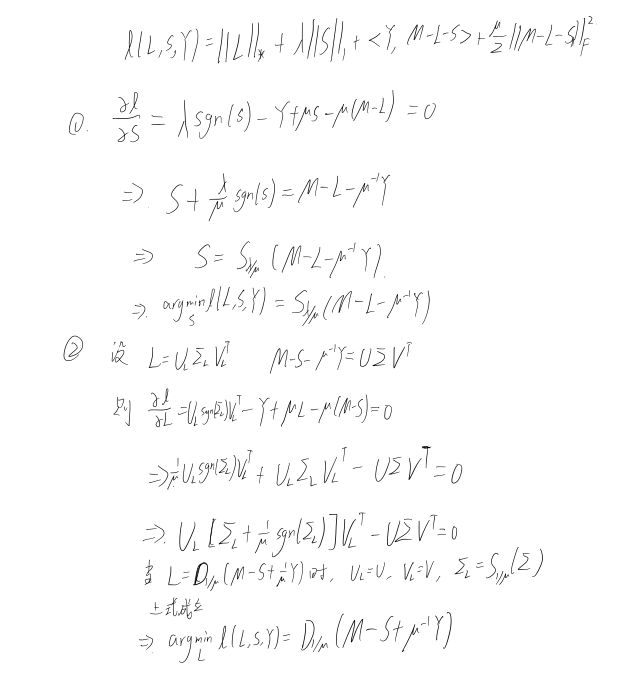 l(L,S,Y)=||L||_* + λ||S||_1 + <Y, M-L-S> + μ/2 ||M-L-S||_F^2
①. ∂l/∂S = λ sgn(s) - Y + μs - μ(M-L) = 0
⇒. S + λ/μ sgn(s) = M-L-μ^{-1}Y
⇒ S = S_{λ/μ} (M-L-μ^{-1}Y).
⇒. argmin_S l(L,S,Y) = S_{λ/μ}(M-L-μ^{-1}Y)
② 设 L=U_LΣ_LV_L^T M-S-μ^{-1}Y=UΣV^T
则 ∂l/∂L =U_L sgn(Σ_L)V_L^T - Y + μL - μ(M-S)=0
⇒ 1/μ U_L sgn(Σ_L)V_L^T + U_LΣ_LV_L^T - UΣV^T=0
⇒. U_L [Σ_L + 1/μ sgn(Σ_L)]V_L^T - UΣV^T=0
当 L=D_{1/μ}(M-S+1/μ Y)时, U_L=U, V_L=V, Σ_L=S_{1/μ}(Σ)
上式成立
⇒ argmin_L l(L,S,Y)= D_{1/μ}(M-S+μ^{-1}Y)